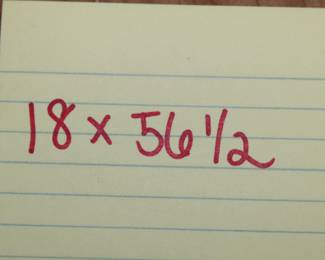 18 x 56 1/2